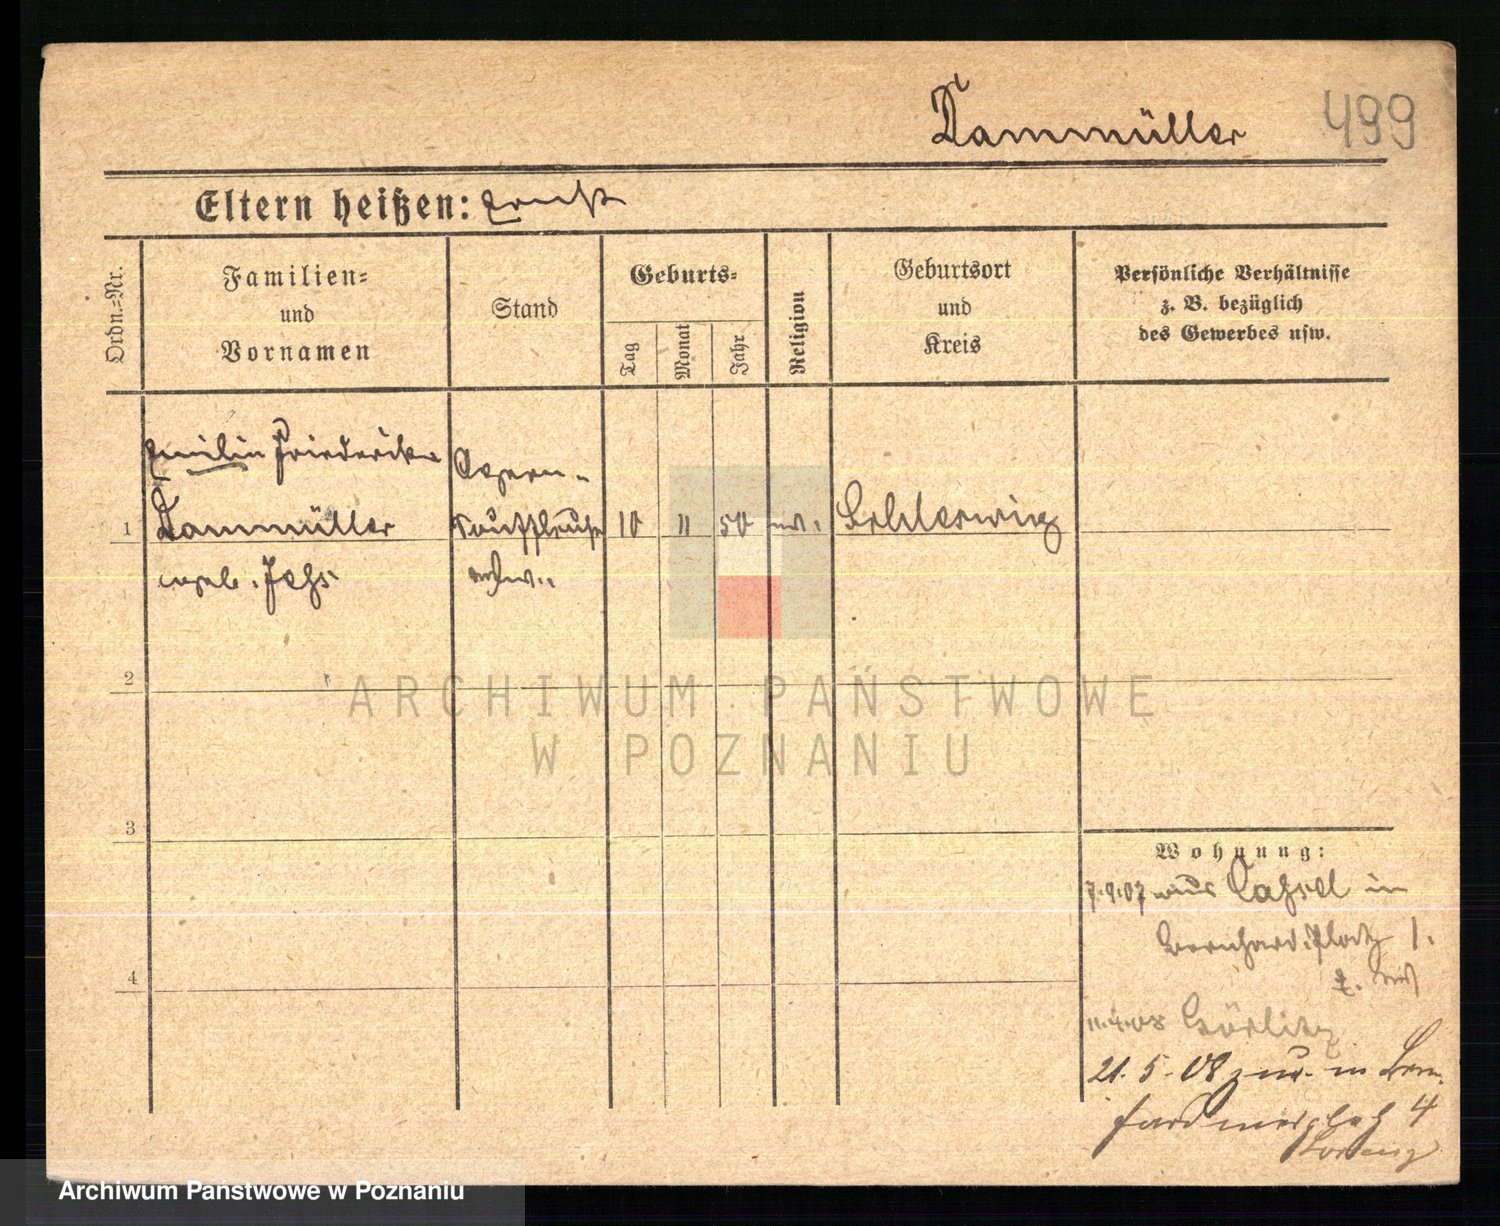 Dammüller 499
Eltern heißen: Ernst
Ordn.-Nr.
Familien-
und
Vornamen
Stand
Geburts-
Tag
Monat
Jahr
Religion
Geburtsort
und
Kreis
Persönliche Verhältnisse
z. B. bezüglich
des Gewerbes usw.
Emilie Friederike
1 Dammüller 10 11 50 ev. Schleswig
geb.
2
3
4
Wohnung:
7.9.07 aus Cassel in
Bernhard. Platz 1.
11.4.08 Görlitz
21.5.08 zur. in
4
ARCHIWUM PAŃSTWOWE
W POZNANIU
Archiwum Państwowe w Poznaniu